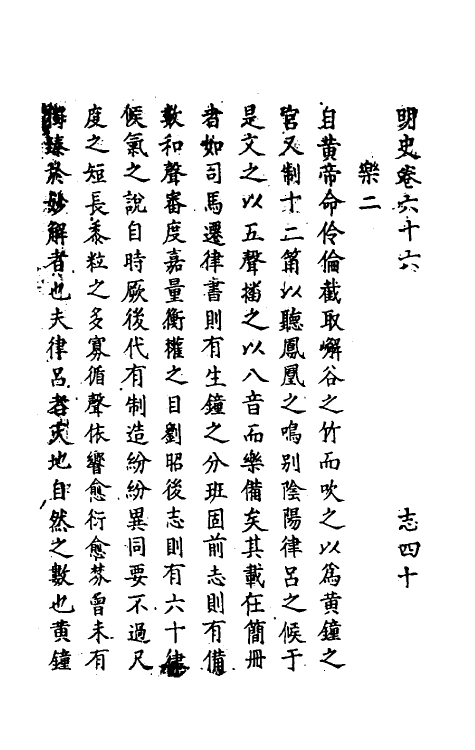 明史卷六十六　志四十
樂二
自黄帝命伶倫截取嶰谷之竹而吹之以爲黄鐘之
宫又制十二筩以聽鳳凰之鳴别陰陽律呂之候于
是文之以五聲播之以八音而樂備矣其載在簡册
者如司馬遷律書則有生鐘之分班固前志則有備
數和聲審度嘉量衡權之目劉昭後志則有六十律
候氣之說自時厥後代有制造紛紛異同要不過尺
度之短長黍粒之多寡循聲依響愈衍愈棼曾未有
臻於妙解者也夫律呂者天地自然之數也黄鐘